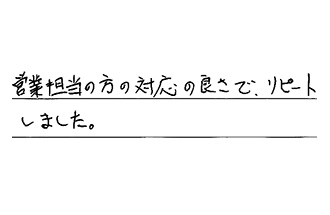 営業担当の方の対応の良さで、リピート
しました。